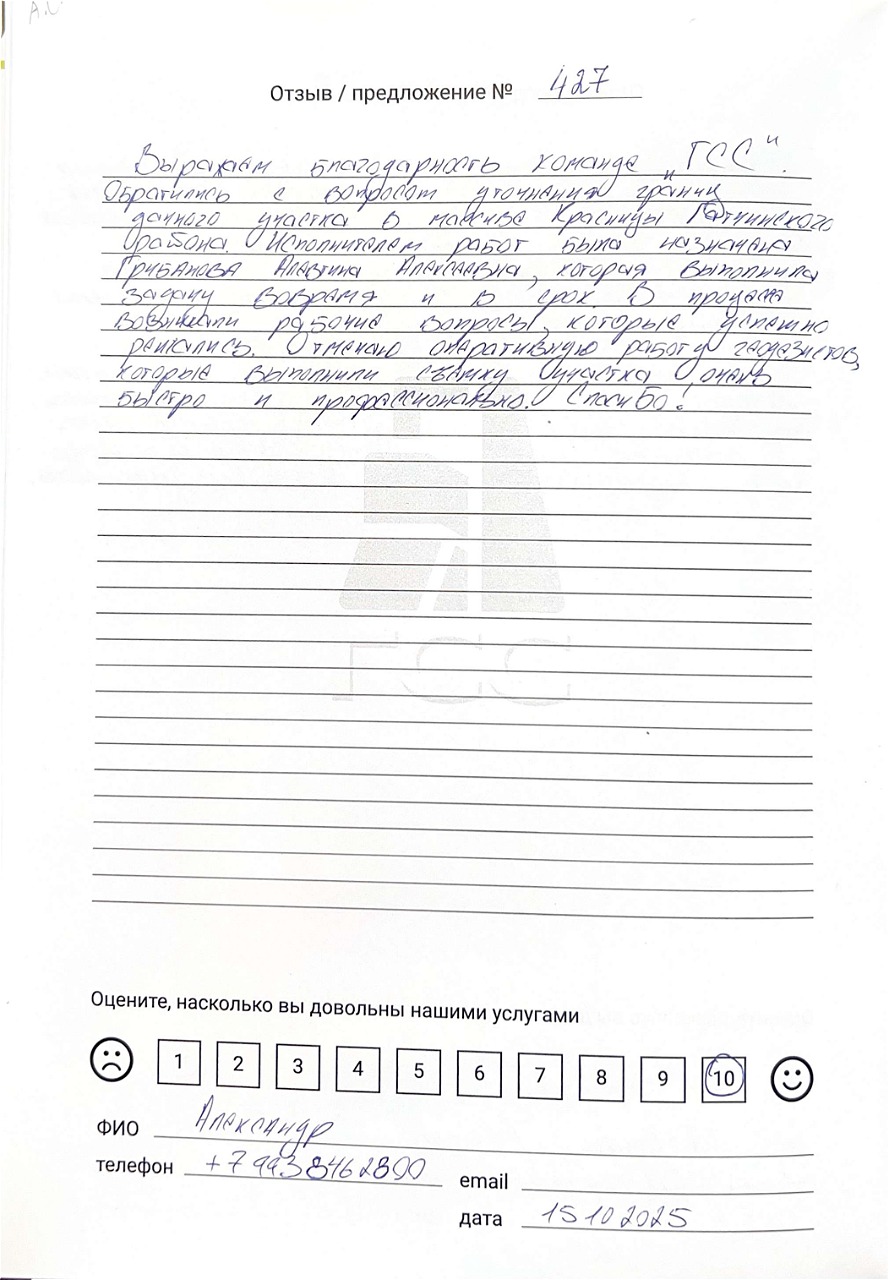 Отзыв / предложение № 427
Выражаем благодарность команде "ГСС".
Обратились с вопросом уточнения границ
дачного участка в массиве Красницы Гатчинского
района. Исполнителем работ была назначена
Грибанова Алевтина Алексеевна, которая выполнила
задачу вовремя и в срок. В процессе
возникали рабочие вопросы, которые успешно
решались. Отмечаю оперативную работу геодезистов,
которые выполнили съемку участка очень
быстро и профессионально. Спасибо!
ГСС
Оцените, насколько вы довольны нашими услугами
1 2 3 4 5 6 7 8 9 10
ФИО Александр
телефон +79938462800
email
дата 15 10 2025